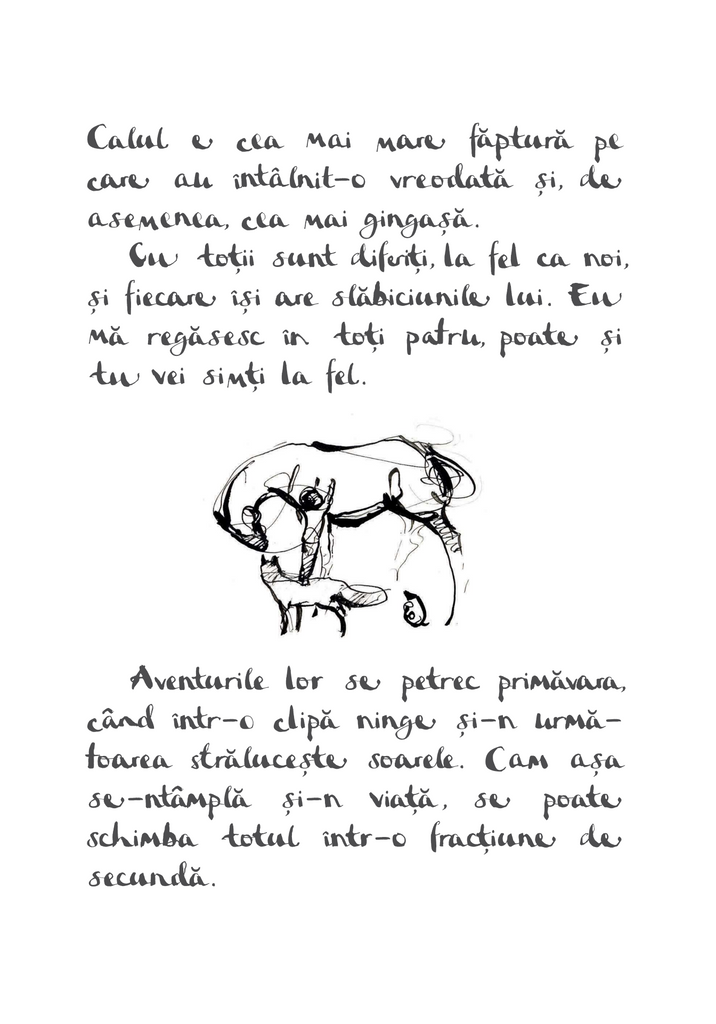 Calul e cea mai mare făptură pe
care au întâlnit-o vreodată și, de
asemenea, cea mai gingașă.
Cu toții sunt diferiți, la fel ca noi,
și fiecare își are slăbiciunile lui. Eu
mă regăsesc în toți patru, poate și
tu vei simți la fel.
Aventurile lor se petrec primăvara,
când într-o clipă ninge și-n urmă-
toarea strălucește soarele. Cam așa
se-ntâmplă și-n viață, se poate
schimba totul într-o fracțiune de
secundă.